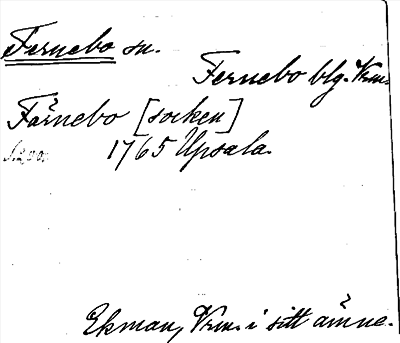 Fernebo sn.
Fernebo blg. Vrm.
Färnebo [socken]
1765 Upsala.
Ekman, Vrm. i sitt ämne.